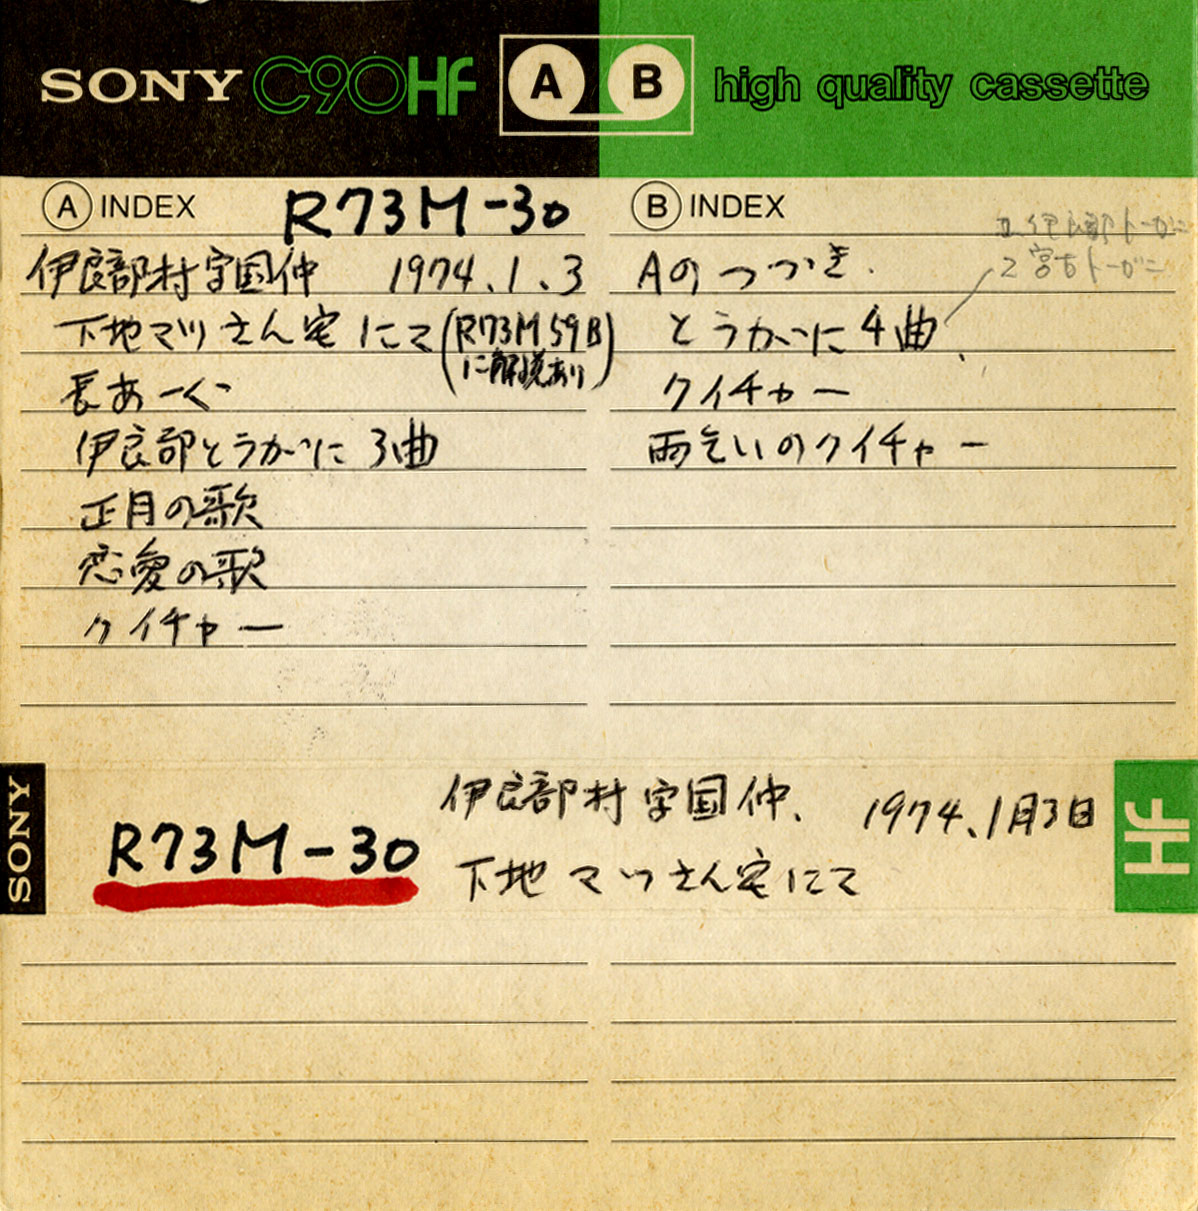 SONY C90HF A B high quality cassette
A INDEX R73M-30
伊良部村字国仲 1974.1.3
下地マツさん宅にて (R73M59B
に解説あり)
長あーぐ
伊良部とうがに 3曲
正月の歌
恋愛の歌
クイチャー
B INDEX
伊良部トーガニ
2 宮古トーガニ
Aのつづき.
とうがに4曲、
クイチャー
雨乞いのクイチャー
SONY
R73M-30
伊良部村字国仲、 1974、1月3日
下地マツさん宅にて
HF